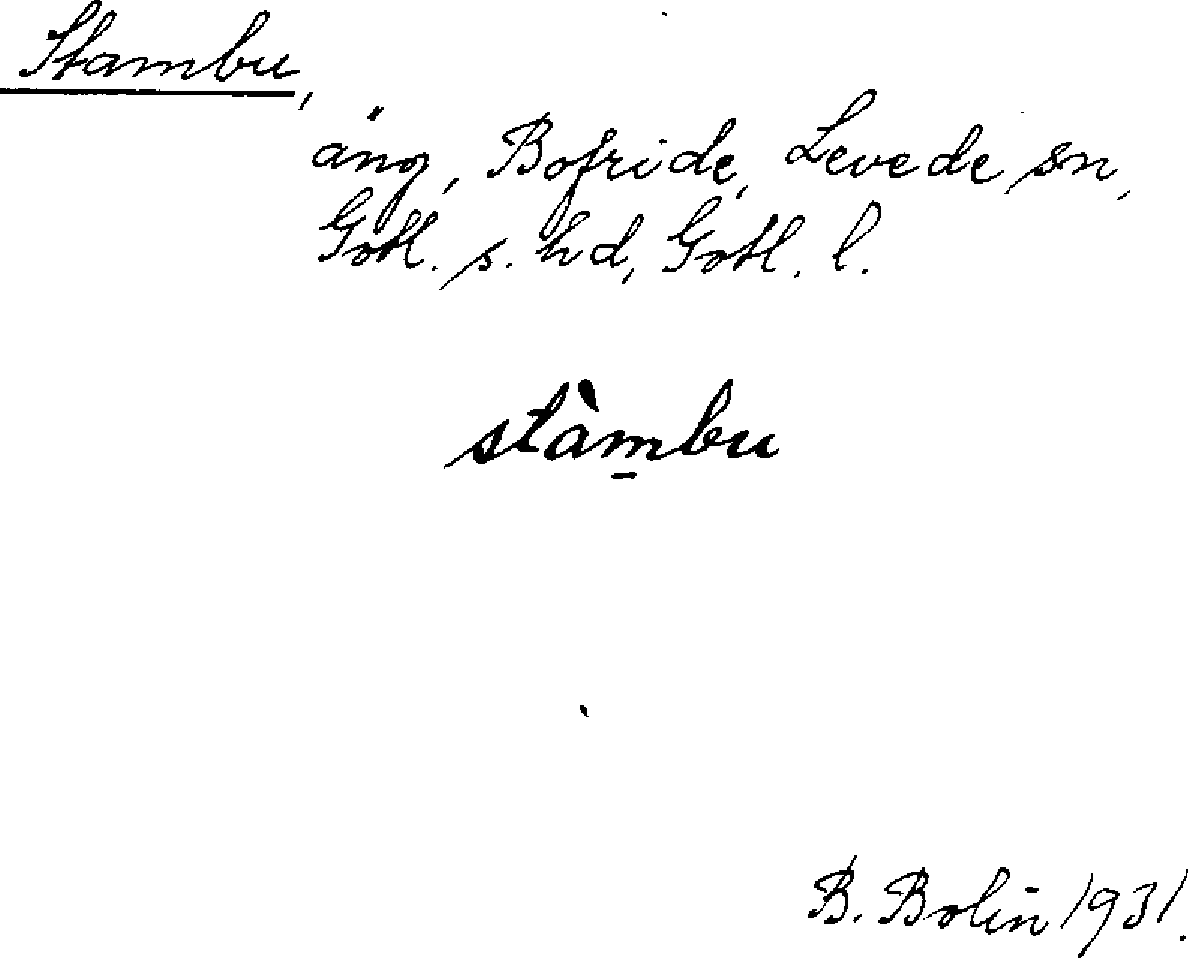 Stambu,
äng, Bofride, Levede sn,
Gotl. s. hd, Gotl. l.
stàm̱bu
B. Bolin 1931.